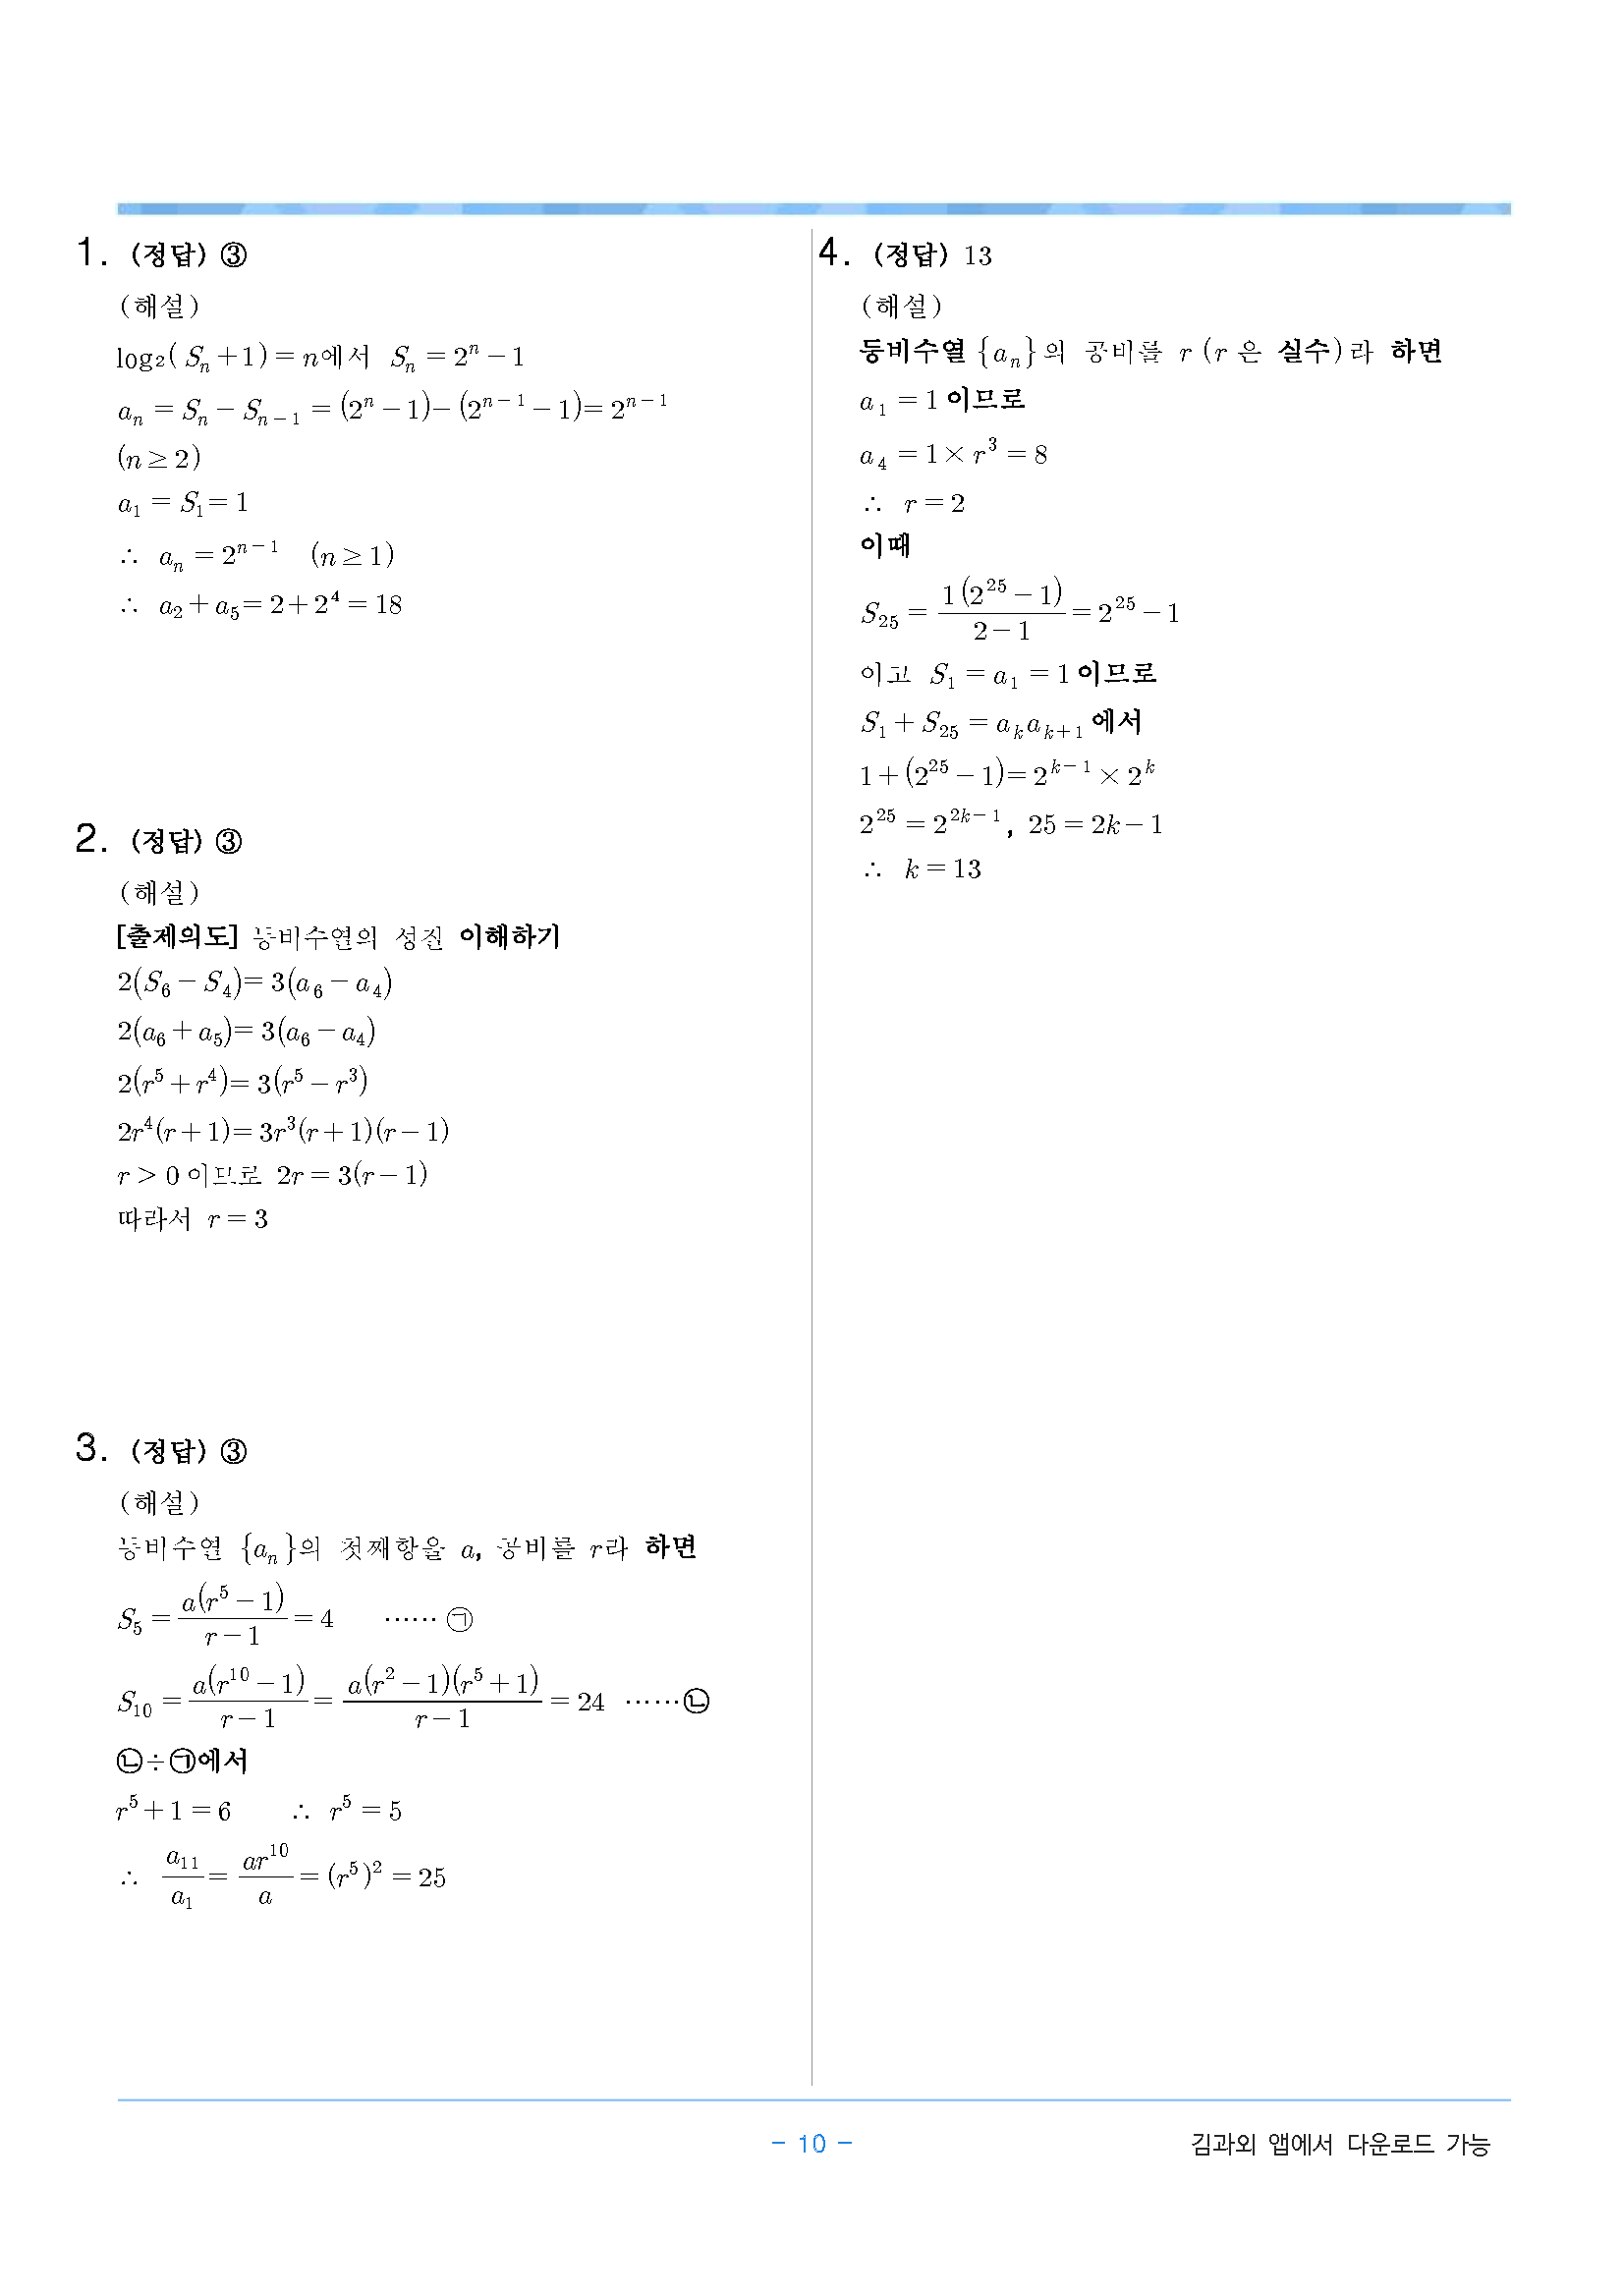 1. (정답) ③
(해설)
log₂( Sₙ +1) = n에서 Sₙ = 2ⁿ − 1
aₙ = Sₙ − Sₙ₋₁ = (2ⁿ − 1)− (2ⁿ⁻¹ − 1)= 2ⁿ⁻¹
(n ≥ 2)
a₁ = S₁ = 1
∴ aₙ = 2ⁿ⁻¹ (n ≥ 1)
∴ a₂ + a₅ = 2 + 2⁴ = 18
2. (정답) ③
(해설)
[출제의도] 등비수열의 성질 이해하기
2(S₆ − S₄)= 3(a₆ − a₄)
2(a₆ + a₅)= 3(a₆ − a₄)
2(r⁵ + r⁴)= 3(r⁵ − r³)
2r⁴(r + 1)= 3r³(r + 1)(r − 1)
r > 0 이므로 2r = 3(r − 1)
따라서 r = 3
3. (정답) ③
(해설)
등비수열 {aₙ}의 첫째항을 a, 공비를 r라 하면
S₅ = a(r⁵ − 1)/(r − 1) = 4 ⋯⋯ ㉠
S₁₀ = a(r¹⁰ − 1)/(r − 1) = a(r² − 1)(r⁵ + 1)/(r − 1) = 24 ⋯⋯㉡
㉡÷㉠에서
r⁵ + 1 = 6 ∴ r⁵ = 5
∴ a₁₁/a₁ = ar¹⁰/a = (r⁵)² = 25
4. (정답) 13
(해설)
등비수열 {aₙ}의 공비를 r (r 은 실수)라 하면
a₁ = 1 이므로
a₄ = 1 × r³ = 8
∴ r = 2
이때
S₂₅ = 1(2²⁵ − 1)/(2 − 1) = 2²⁵ − 1
이고 S₁ = a₁ = 1 이므로
S₁ + S₂₅ = aₖaₖ₊₁ 에서
1 + (2²⁵ − 1)= 2ᵏ⁻¹ × 2ᵏ
2²⁵ = 2²ᵏ⁻¹, 25 = 2k − 1
∴ k = 13
- 10 -
김과외 앱에서 다운로드 가능